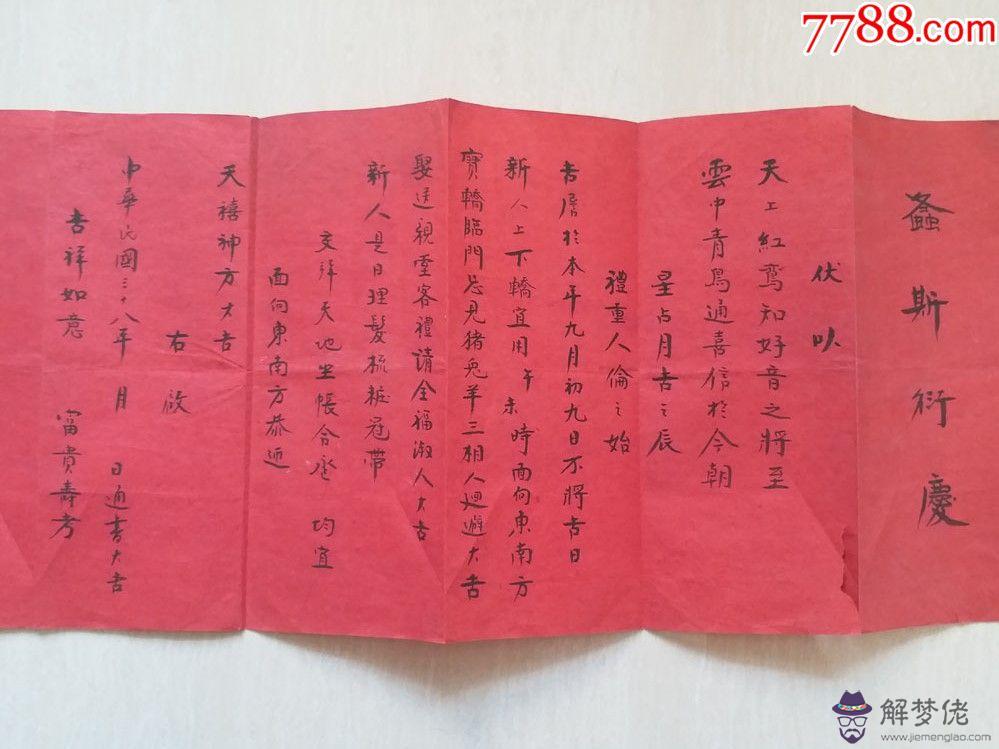 7788.com
螽斯衍慶
伏以
天上紅鸞知好音之將至
雲中青鳥通喜信於今朝
星占月吉之辰
禮重人倫之始
吉居於本年九月初九日不將吉日
新人上下轎宜用午未時面向東南方
寶轎臨門忌見猪兔羊三相人迴避大吉
娶送親堂客禮請全福淑人大吉
新人是日理髮梳粧冠帶
交拜天地坐帳合巹均宜
面向東南方恭迎
天禧神方大吉
右啟
中華民國三十八年 月 日通書大吉
吉祥如意 富貴壽考
解梦佬
www.jiemenglao.com